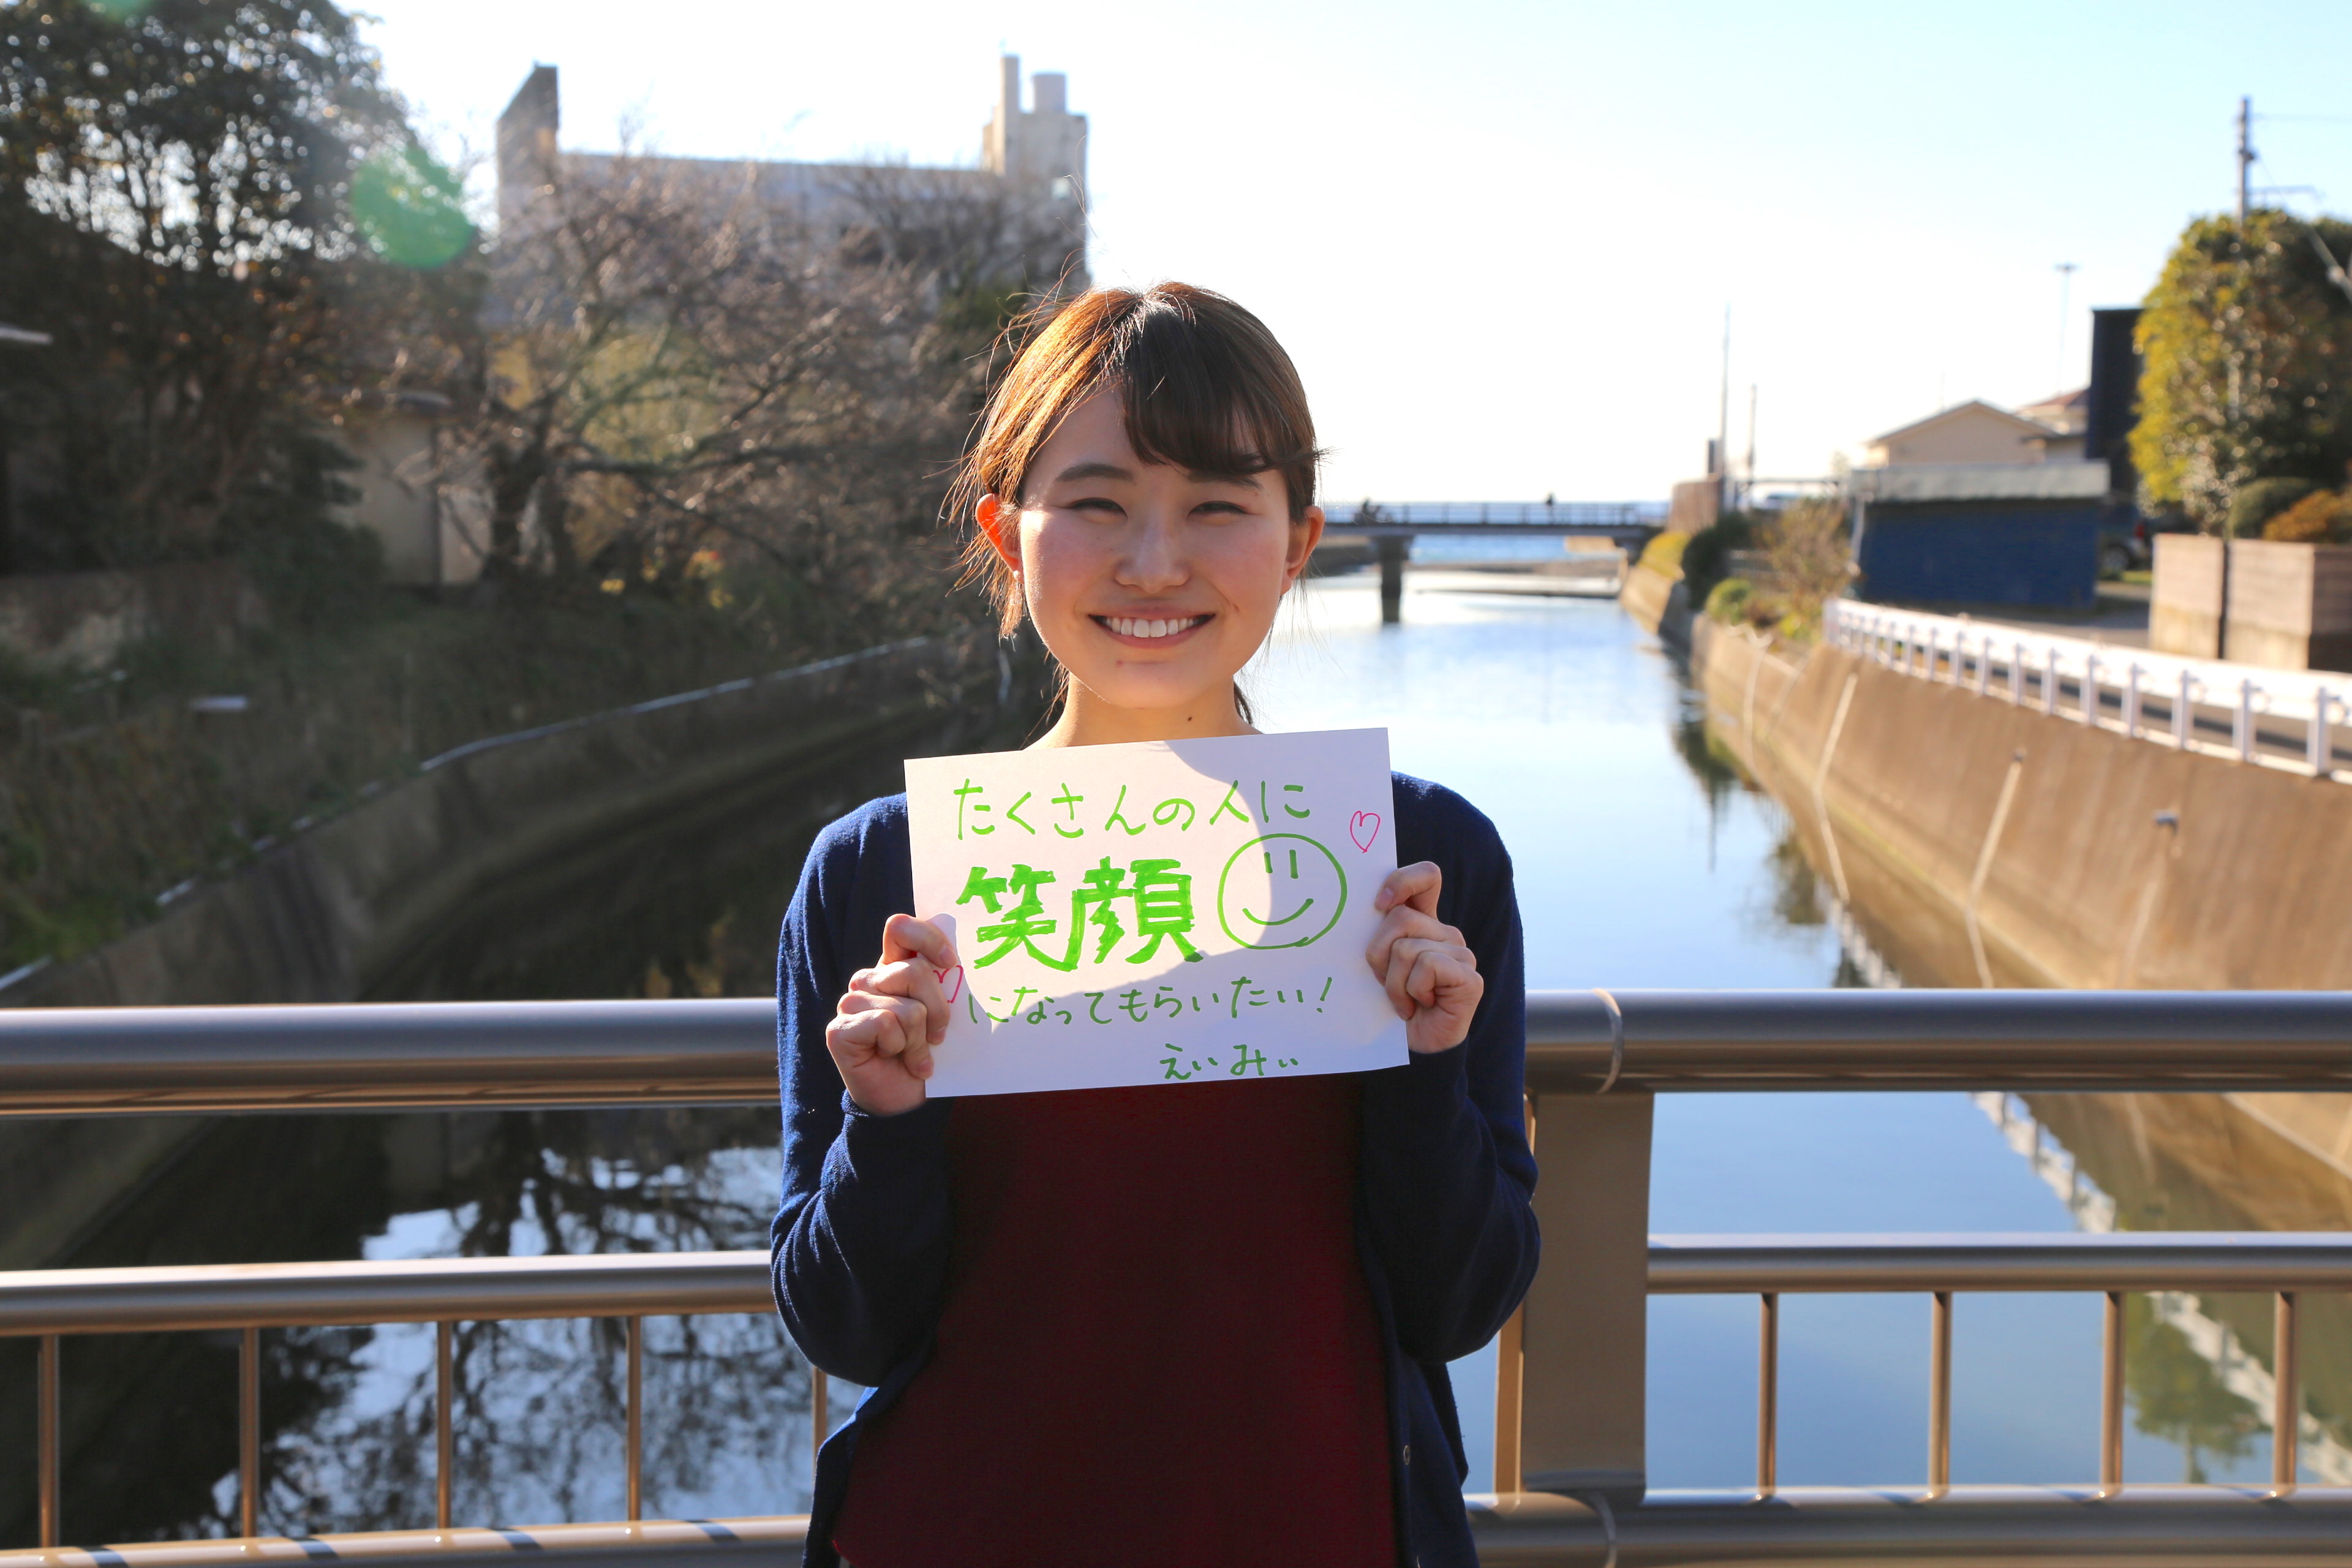 たくさんの人に
笑顔
になってもらいたい!
えいみい